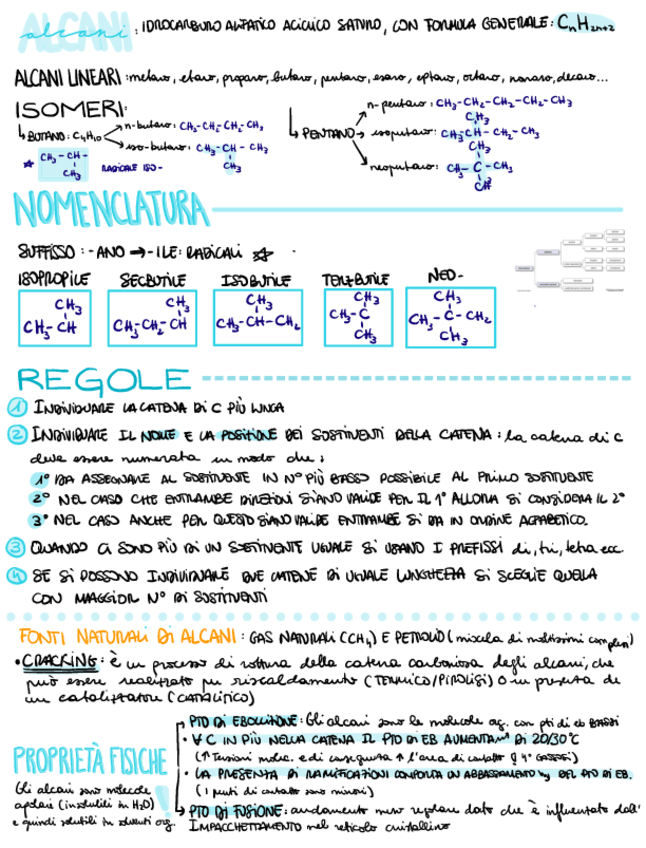 ALCANI
alcani : IDROCARBURO ALIFATICO ACICLICO SATURO, CON FORMULA GENERALE: CnH2n+2
ALCANI LINEARI: metano, etano, propano, butano, pentano, esano, eptano, ottano, nonano, decano...
ISOMERI:
↳ BUTANO: C4H10
n-butano: CH3-CH2-CH2-CH3
iso-butano: CH3-CH-CH3
CH3
☆ CH3-CH-
CH3
RADICALE ISO-
↳ PENTANO
n-pentano: CH3-CH2-CH2-CH2-CH3
CH3
isopentano: CH3CH-CH2-CH3
CH3
neopentano: CH3-C-CH3
CH3
NOMENCLATURA
SUFFISSO: -ANO → -ILE: RADICALI ☆
ISOPROPILE
CH3
CH3-CH
SECBUTILE
CH3
CH3-CH2-CH
ISOBUTILE
CH3
CH3-CH-CH2
TERZBUTILE
CH3
CH3-C
CH3
NEO-
CH3
CH3-C-CH2
CH3
REGOLE
1 INDIVIDUARE LA CATENA DI C PIÙ LUNGA
2 INDIVIDUARE IL NOME E LA POSIZIONE DEI SOSTITUENTI DELLA CATENA: la catena di C
deve essere numerata in modo che:
1° DA ASSEGNARE AL SOSTITUENTE IN N° PIÙ BASSO POSSIBILE AL PRIMO SOSTITUENTE
2° NEL CASO CHE ENTRAMBE DIREZIONI SIANO VALIDE PER IL 1° ALLORA SI CONSIDERA IL 2°
3° NEL CASO ANCHE PER QUESTO SIANO VALIDE ENTRAMBE SI DA IN ORDINE ALFABETICO.
3 QUANDO CI SONO PIÙ DI UN SOSTITUENTE UGUALE SI USANO I PREFISSI di, tri, tetra ecc.
4 SE SI POSSONO INDIVIDUARE DUE CATENE DI UGUALE LUNGHEZZA SI SCEGLIE QUELLA
CON MAGGIOR N° DI SOSTITUENTI
FONTI NATURALI DI ALCANI: GAS NATURALI (CH4) E PETROLIO (miscela di moltissimi complessi)
• CRACKING: è un processo di rottura della catena carboniosa degli alcani, che
può essere realizzato per riscaldamento (TERMICO/PIROLISI) O in presenza di
un catalizzatore (CATALITICO)
PROPRIETÀ FISICHE
Gli alcani sono molecole
apolari (insolubili in H2O)
e quindi solubili in solventi org.
PTO DI EBOLLIZIONE: Gli alcani sono le molecole org. con pti di eb BASSI
• ∀ C IN PIÙ NELLA CATENA IL PTO DI EB AUMENTA DI 20/30°C
(↑ Tensioni molec. e di conseguenza ↑ l'area di contatto 4° GASSOSI)
• LA PRESENZA DI RAMIFICAZIONI COMPORTA UN ABBASSAMENTO DEL PTO DI EB.
(I punti di contatto sono minori)
PTO DI FUSIONE: andamento meno regolare dato che è influenzato dall'
IMPACCHETTAMENTO nel reticolo cristallino